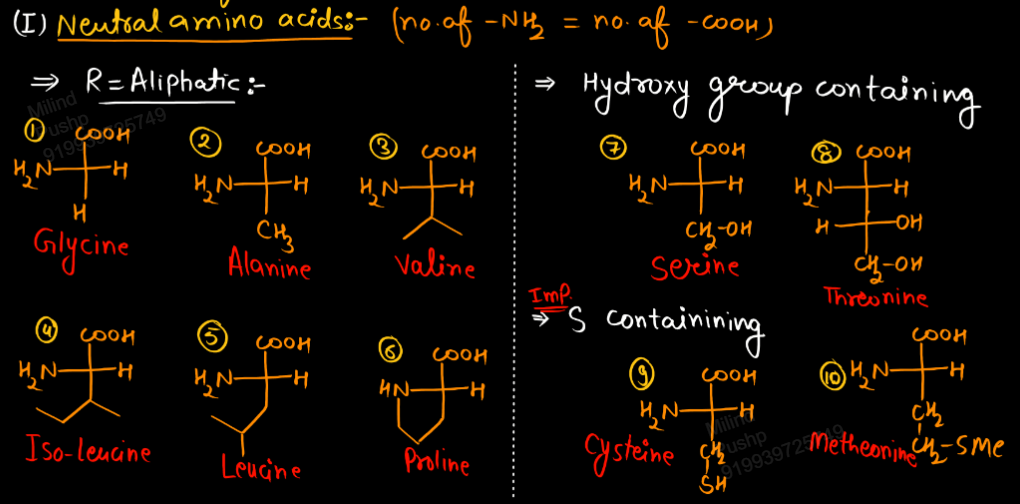 (I) Neutral amino acids:- (no. of -NH2 = no. of -COOH)
⇒ R = Aliphatic :-
① COOH
H2N H
H
Glycine
② COOH
H2N H
CH3
Alanine
③ COOH
H2N H
Valine
④ COOH
H2N H
Iso-leucine
⑤ COOH
H2N H
Leucine
⑥ COOH
HN H
Proline
⇒ Hydroxy group containing
⑦ COOH
H2N H
CH2-OH
Serine
⑧ COOH
H2N H
H OH
CH2-OH
Threonine
Imp.
⇒ S containining
⑨ COOH
H2N H
CH2
SH
Cysteine
⑩ COOH
H2N H
CH2
CH2-SMe
Metheonine
Milind
ushp
919939725749
Milind
ushp
919939725749